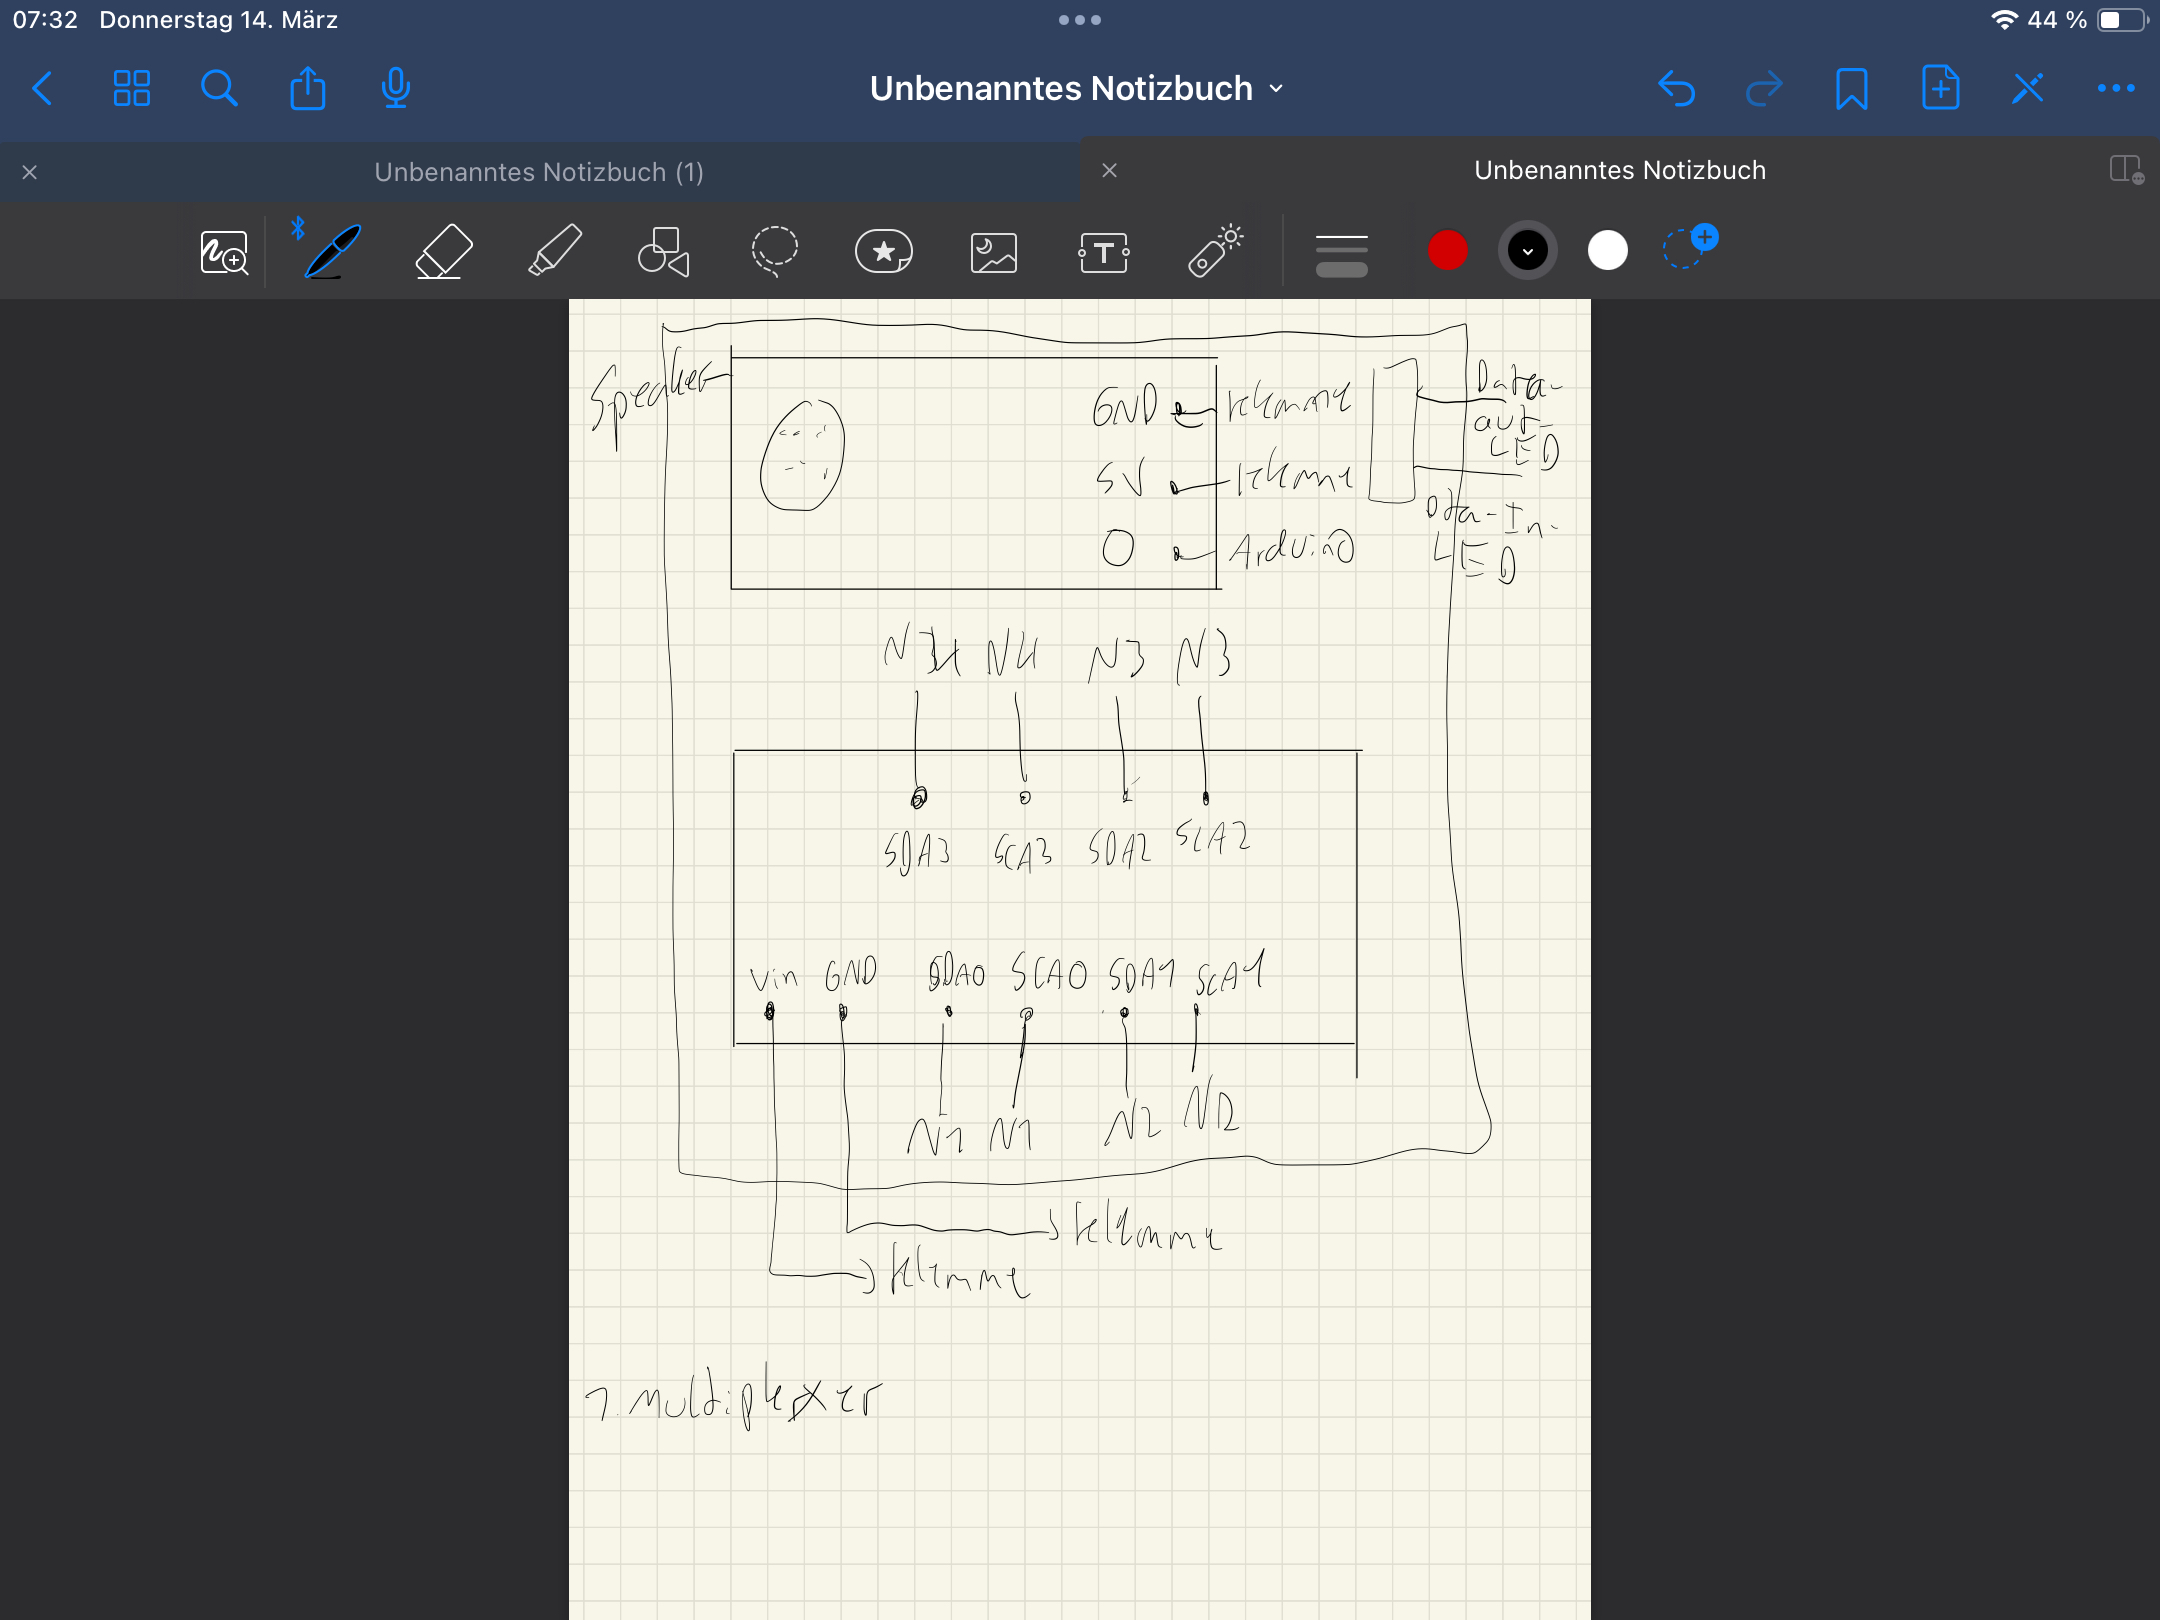 07:32 Donnerstag 14. März 44 %
Unbenanntes Notizbuch
Unbenanntes Notizbuch (1) Unbenanntes Notizbuch
Speaker
GND Klemme
5V Klemme
O Arduino
Data-
out-
LED
Data-In-
LED
N4 N3 N3
SDA3 SCA3 SDA2 SCA2
Vin GND SDA0 SCA0 SDA1 SCA1
N1 N1 N2 N2
Klemme
Klemme
1. Multiplexer